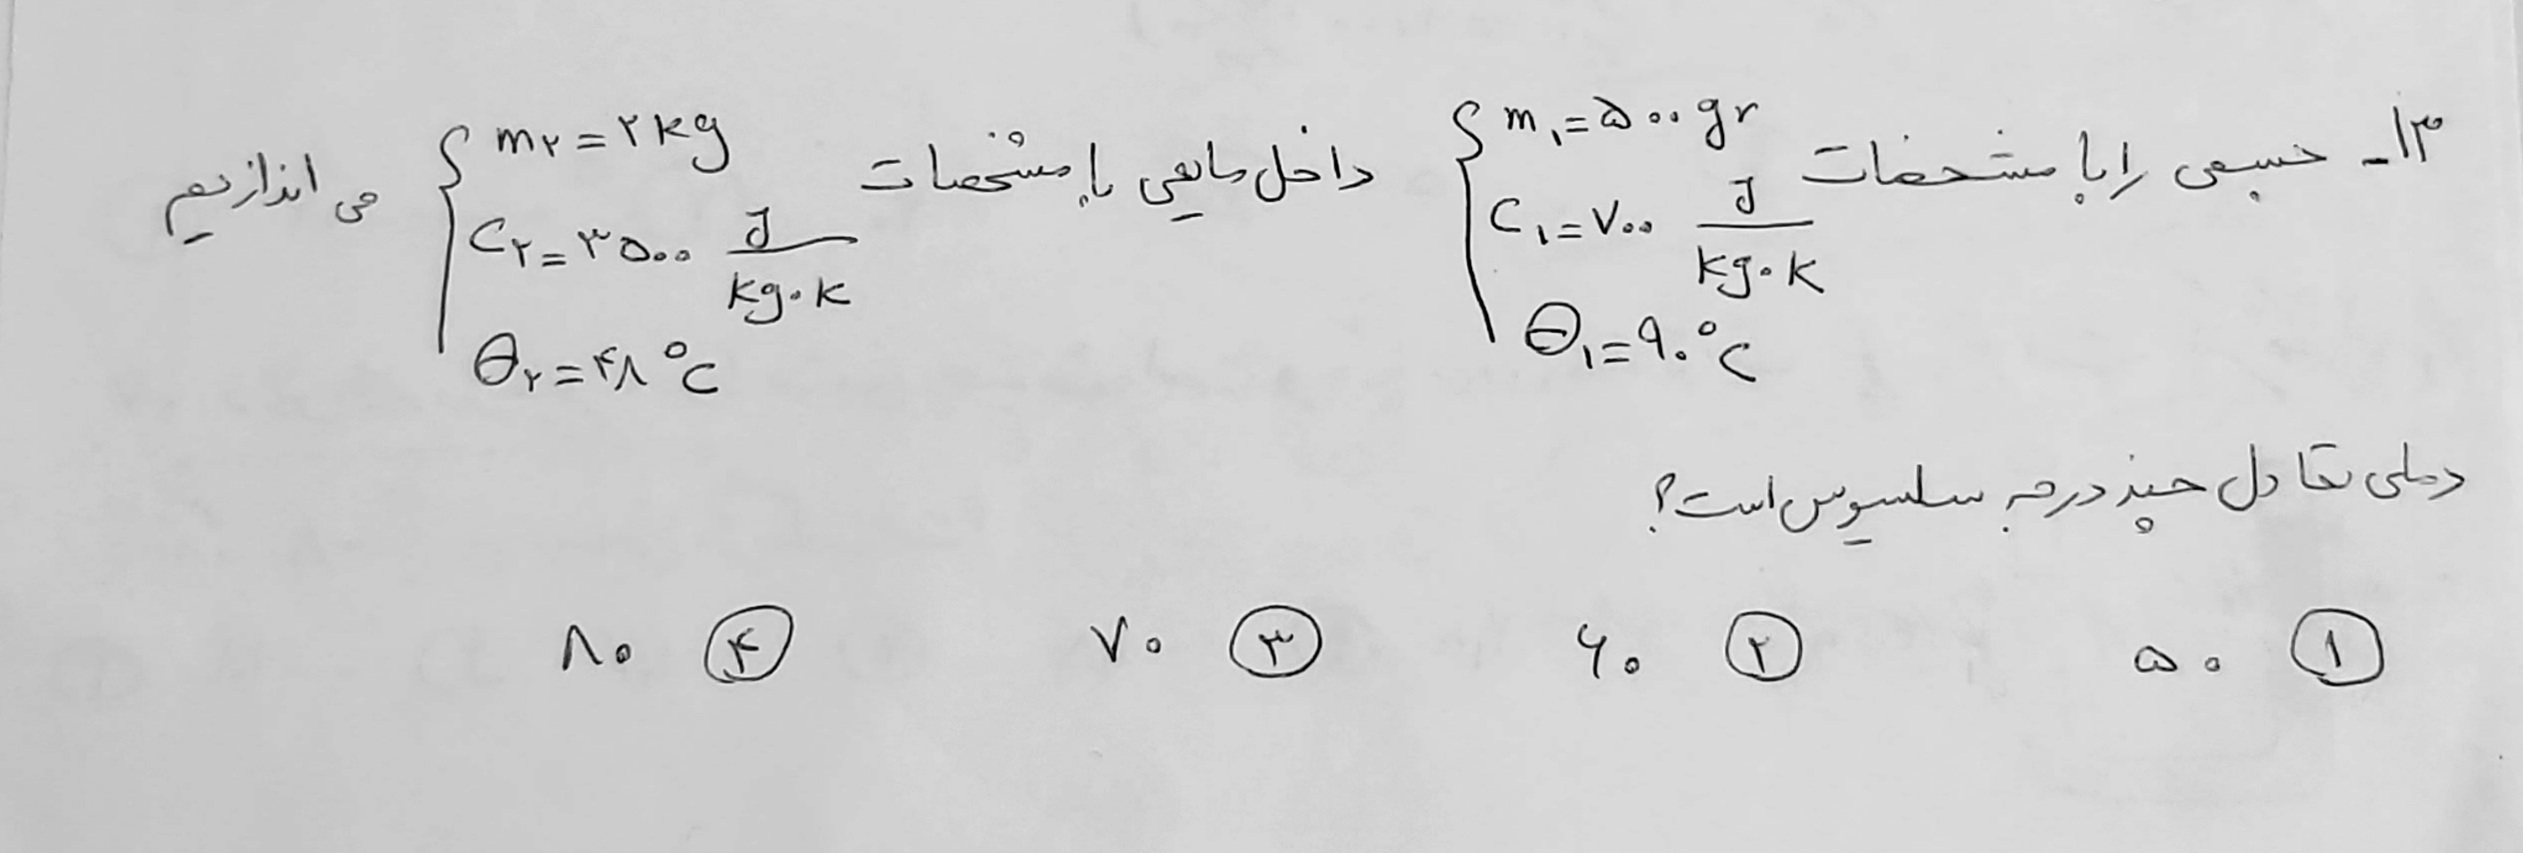 ۱۳- جسمی را با مشخصات { m۱=۵۰۰ gr , C۱=۷۰۰ J/kg.K , θ۱=۹۰°C داخل مایعی با مشخصات { m۲=۲kg , C۲=۳۵۰۰ J/kg.K , θ۲=۴۸°C می اندازیم
دمای تعادل چند درجه سلسیوس است؟
۱ ۵۰ ۲ ۶۰ ۳ ۷۰ ۴ ۸۰